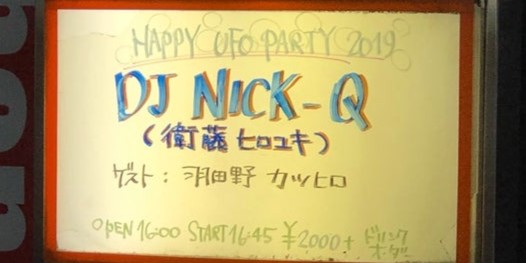 HAPPY UFO PARTY 2019
DJ NICK-Q
(衛藤ヒロユキ)
ゲスト：羽田野 カツヒロ
OPEN 16:00 START 16:45 ¥2000+ ドリンク
オーダー